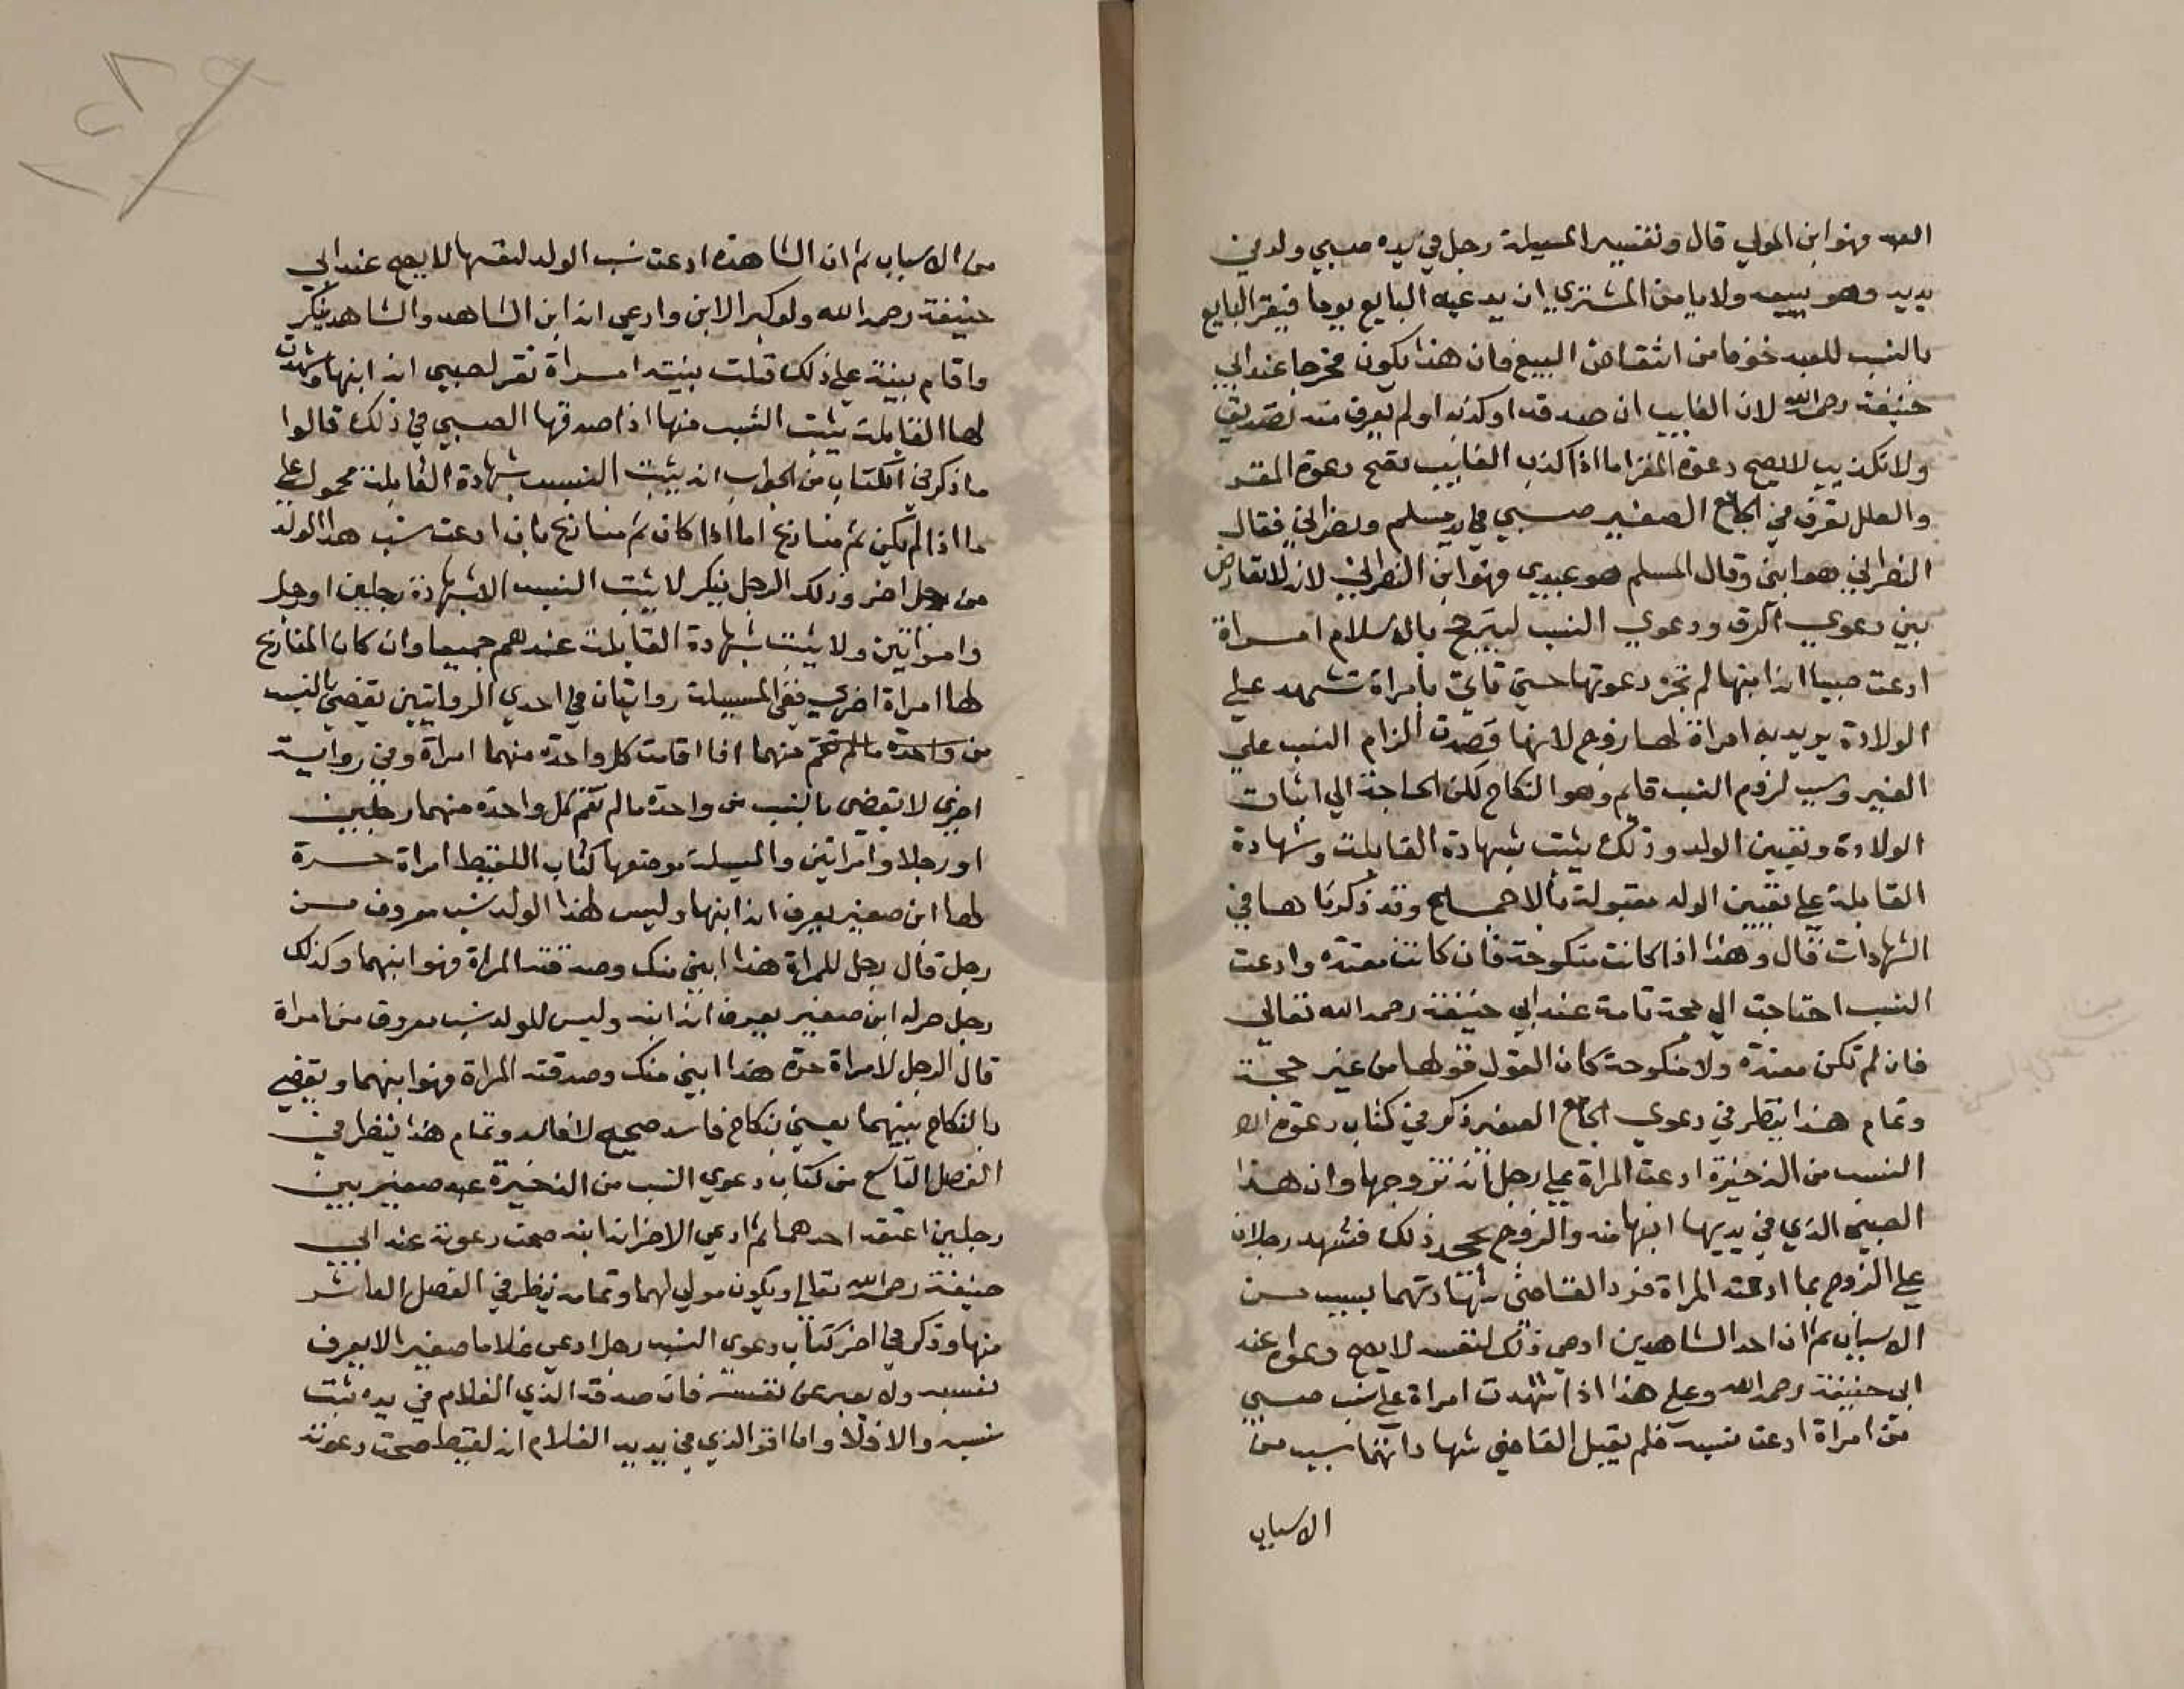 العبد فهو ابن المولي قال وتفسير المسيلة رجل في يده صبي ولد في
يديه وهو يبيعه ولا يامن المشتري ان يدعيه البايع يوما فيقر البايع
بالنسب للعبد خوفا من انتقاض البيع فان هذا يكون مخرجا عند ابي
حنيفة رحمه الله لان الغايب ان صدقه او كذبه او لم يعرف منه تصديق
ولا تكذيب لا يصح دعوة المقر اما اذا كذب الغايب تصح دعوة المقر
والعلل تعرف في الجامع الصغير صبي في يد مسلم ونصراني فقال
النصراني هو ابني وقال المسلم هو عبدي فهو ابن النصراني لانه لا تعارض
بين دعوي الرق ودعوي النسب ليترجح بالاسلام امراة
ادعت صبيا انه ابنها لم تجز دعوتها حتي تاتي بامراة تشهد علي
الولادة يريد به امراة لها زوج لانها قصدت الزام النسب علي
الغير وسبب لزوم النسب قايم وهو النكاح لكن الحاجة الي اثبات
الولادة وتعيين الولد وذلك يثبت بشهادة القابلة وشهادة
القابلة علي تعيين الولد مقبولة بالاجماع وقد ذكرناها في
الشهادات قال وهذا اذا كانت منكوحة فان كانت معتدة وادعت
النسب احتاجت الي حجة تامة عند ابي حنيفة رحمه الله تعالي
فان لم تكن معتدة ولا منكوحة كان القول قولها من غير حجة
وتمام هذا ينظر في دعوي الجامع الصغير ذكر في كتاب دعوة
النسب من الذخيرة ادعت المراة علي رجل انه تزوجها وان هذا
الصبي الذي في يديها ابنها منه والزوج يجحد ذلك فشهد رجلان
علي الزوج بما ادعته المراة فرد القاضي شهادتهما بسبب من
الاسباب ثم ان احد الشاهدين ادعي ذلك لنفسه لا يصح دعواه عند
ابي حنيفة رحمه الله وعلي هذا اذا شهدت امراة علي نسب صبي
من امراة ادعت نسبه فلم يقبل القاضي شهادتهما بسبب من
الاسباب
من الاسباب ثم ان الشاهدة ادعت نسب الولد لنفسها لا يصح عند ابي
حنيفة رحمه الله ولو كبر الابن وادعي انه ابن الشاهد والشاهد ينكر
واقام بينة علي ذلك قبلت بينته امراة تقر لصبي انه ابنها وشهدت
لها القابلة يثبت النسب منها اذا صدقها الصبي في ذلك قالوا
ما ذكر في الكتاب من الجواب انه يثبت النسب بشهادة القابلة محمول علي
ما اذا لم يكن ثم منازع اما اذا كان ثم منازع بان ادعت نسب هذا الولد
من رجل اخر وذلك الرجل ينكر لا يثبت النسب الا بشهادة رجلين او رجل
وامراتين ولا يثبت بشهادة القابلة عندهم جميعا وان كان المنازع
لها امراة اخري ففي المسيلة روايتان في احدي الروايتين يقضي بالنسب
من واحدة ما لم تقم منهما اذا اقامت كل واحدة منهما امراة وفي رواية
اخري لا يقضي بالنسب من واحدة ما لم تقم كل واحدة منهما رجلين
او رجلا وامراتين والمسيلة موضعها كتاب اللقيط امراة حرة
لها ابن صغير يعرف انه ابنها وليس لهذا الولد نسب معروف من
رجل قال رجل للمراة هذا ابني منك وصدقته المراة فهو ابنهما وكذلك
رجل حر له ابن صغير يعرف انه ابنه وليس للولد نسب معروف من امراة
قال الرجل لامراة حرة هذا ابني منك وصدقته المراة فهو ابنهما ويقضي
بالنكاح بينهما يعني بنكاح فاسد صحيح لا فاسد وتمام هذا ينظر في
الفصل التاسع من كتاب دعوي النسب من الذخيرة عبد صغير بين
رجلين اعتقه احدهما ثم ادعي الاخر انه ابنه صحت دعوته عند ابي
حنيفة رحمه الله تعالي ويكون مولي لهما وتمامه ينظر في الفصل العاشر
منها وذكر في اخر كتاب دعوي النسب رجل ادعي غلاما صغيرا لا يعرف
نفسه ولا يعبر عن نفسه فان صدقه الذي الغلام في يده ثبت
نسبه والا فلا واما اقر الذي في يديه الغلام انه لقيط صحت دعوته